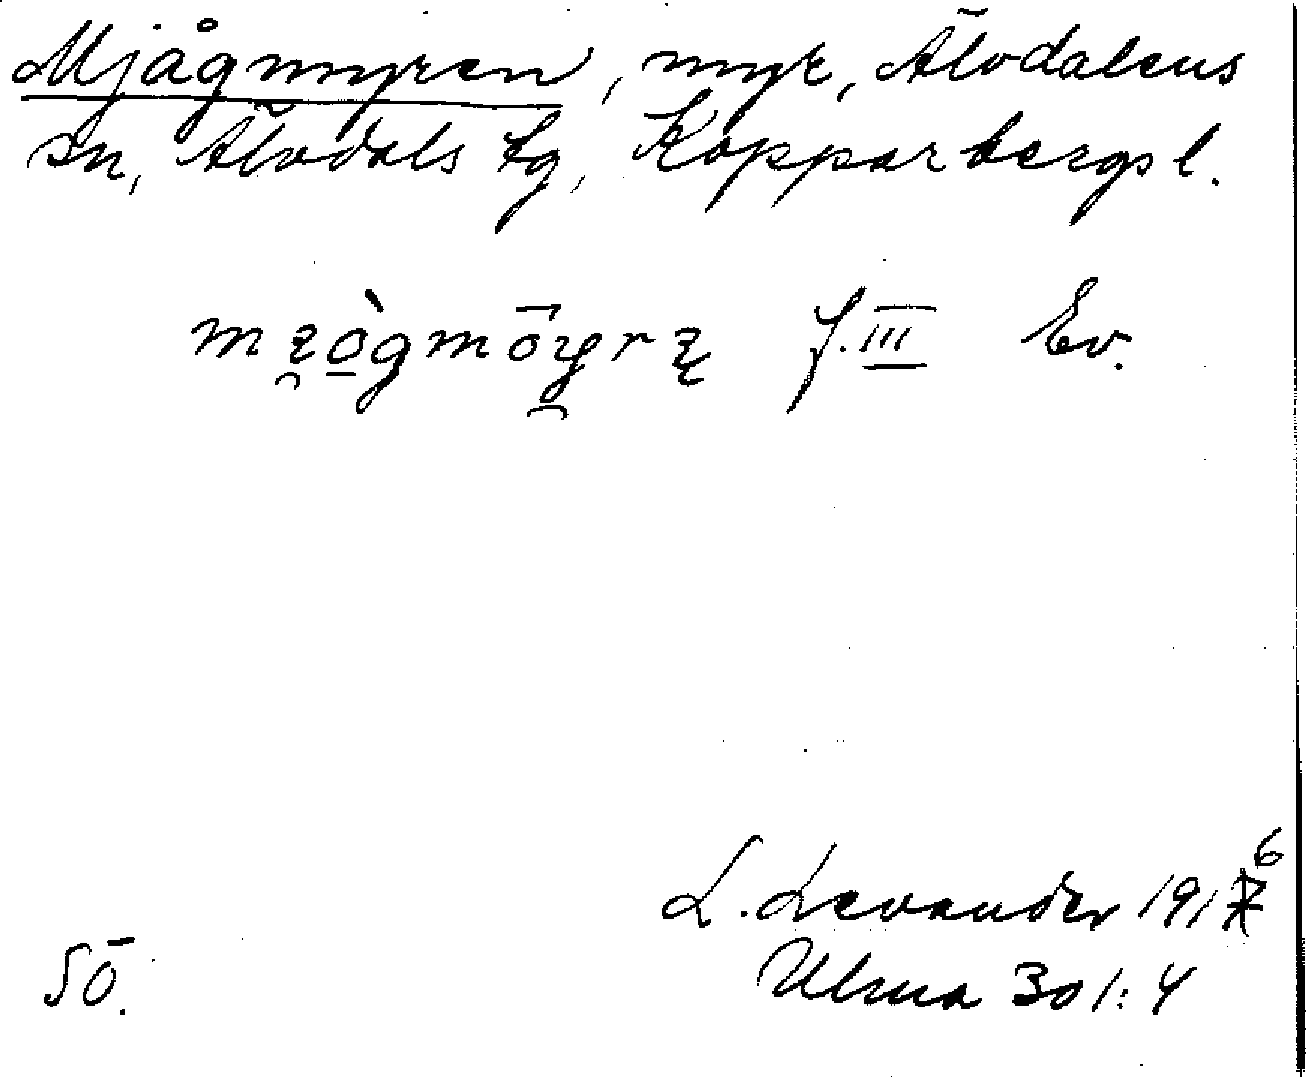 Mjågmyren, myr, Älvdalens
sn, Älvdals tg, Kopparbergs l.
f. III Ev.
L. Levander 1916
Ulma 301:4
SÖ.